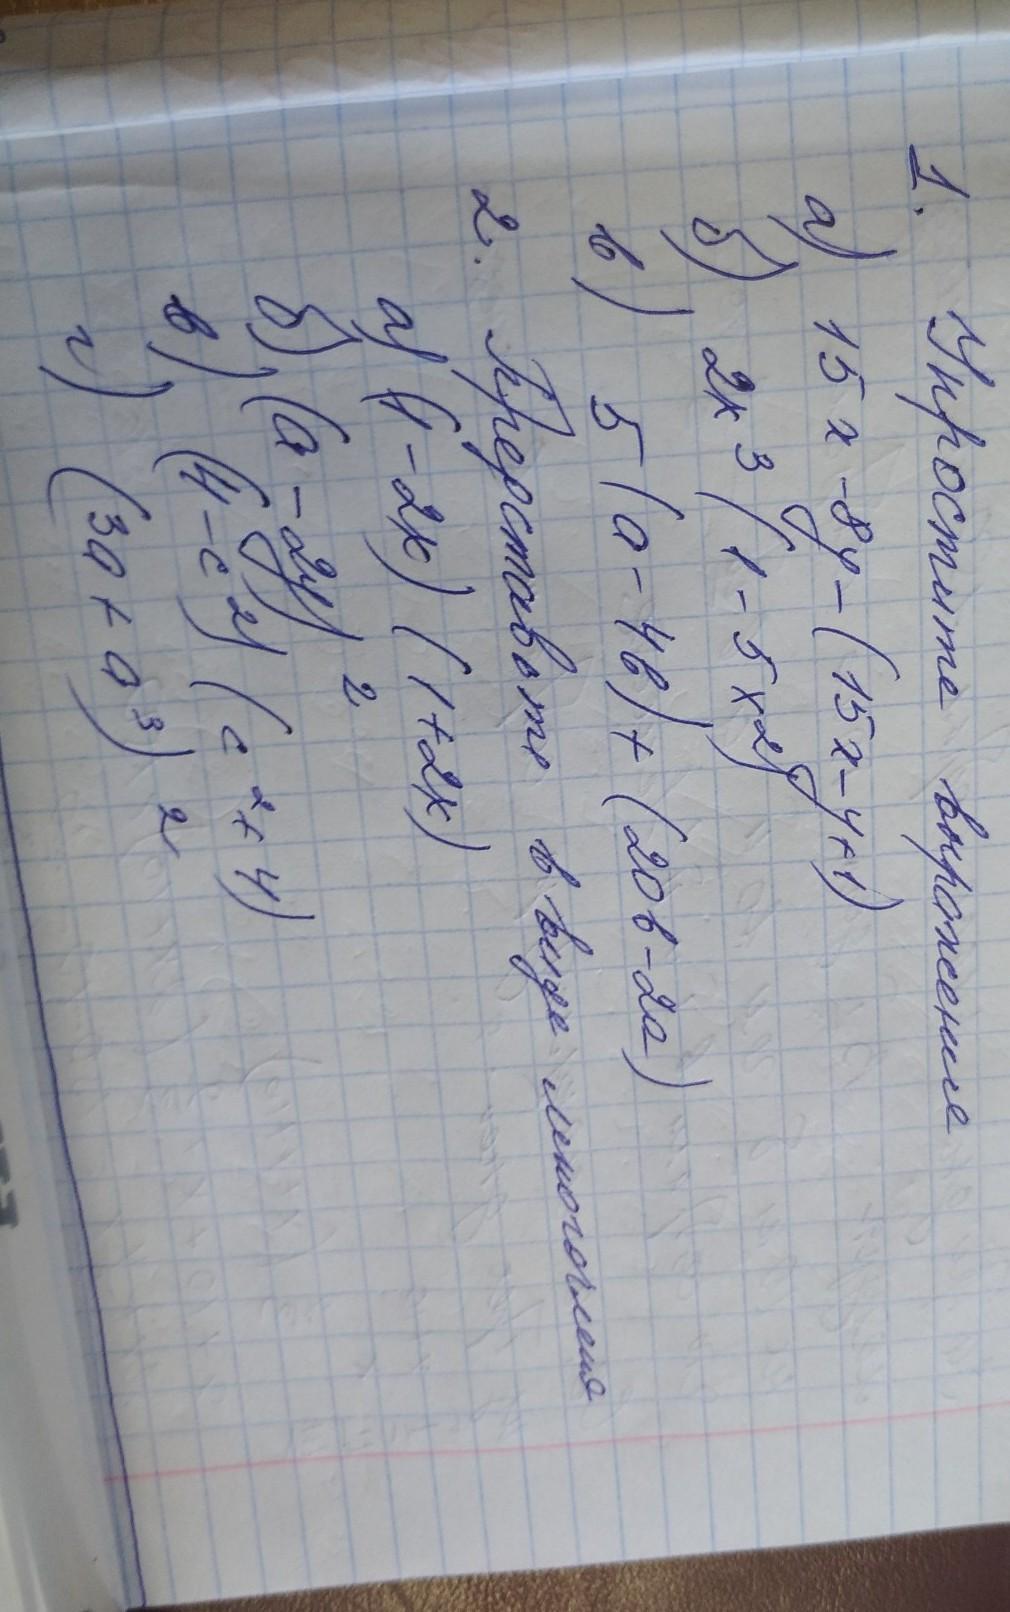 1. Упростите выражение
а) 15x - 8y - (15x - y + 1)
б) 2x³ (1 - 5x²)
в) 5 (а - 4в) + (20в - 2а)
2. Представьте в виде многочлена
а) (1 - 2x) (1 + 2x)
б) (а - 2y)²
в) (4 - c²) (c² + 4)
г) (3а + а³)²